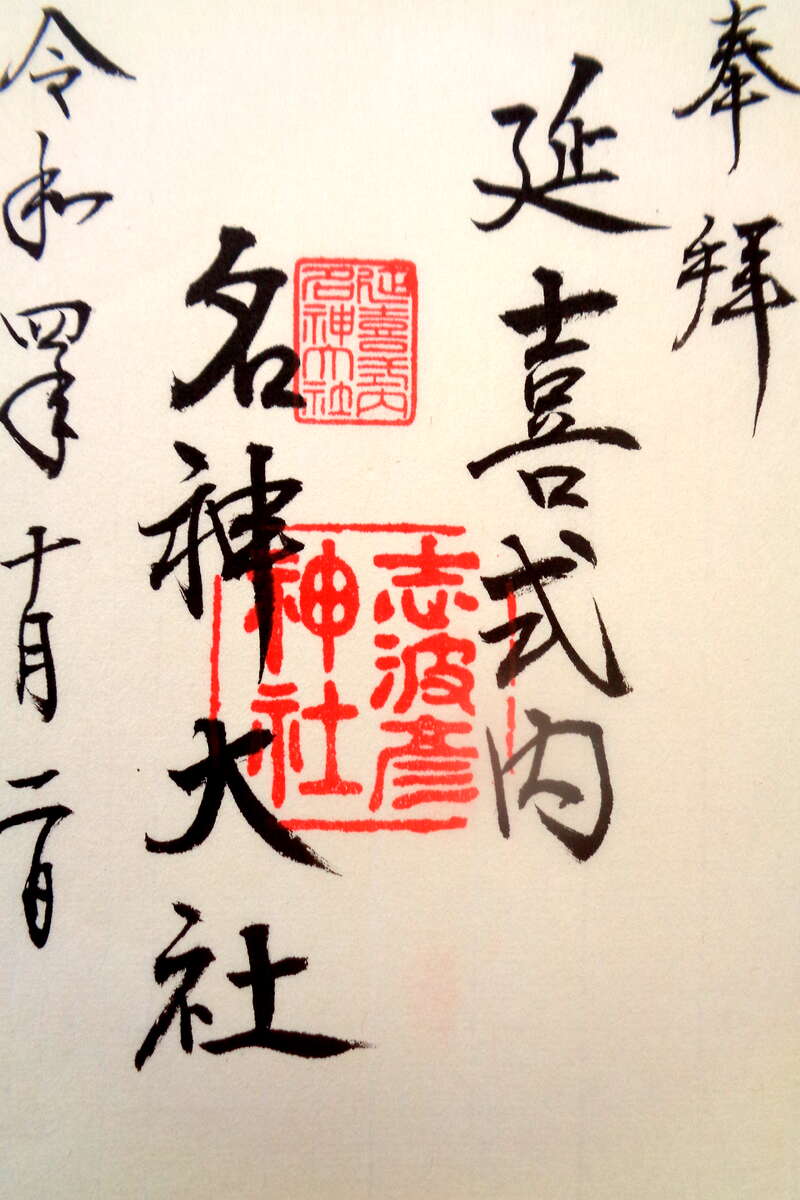 奉拝
延喜式内
名神大社
延喜式内
名神大社
志波彦
神社
令和四年十月二日